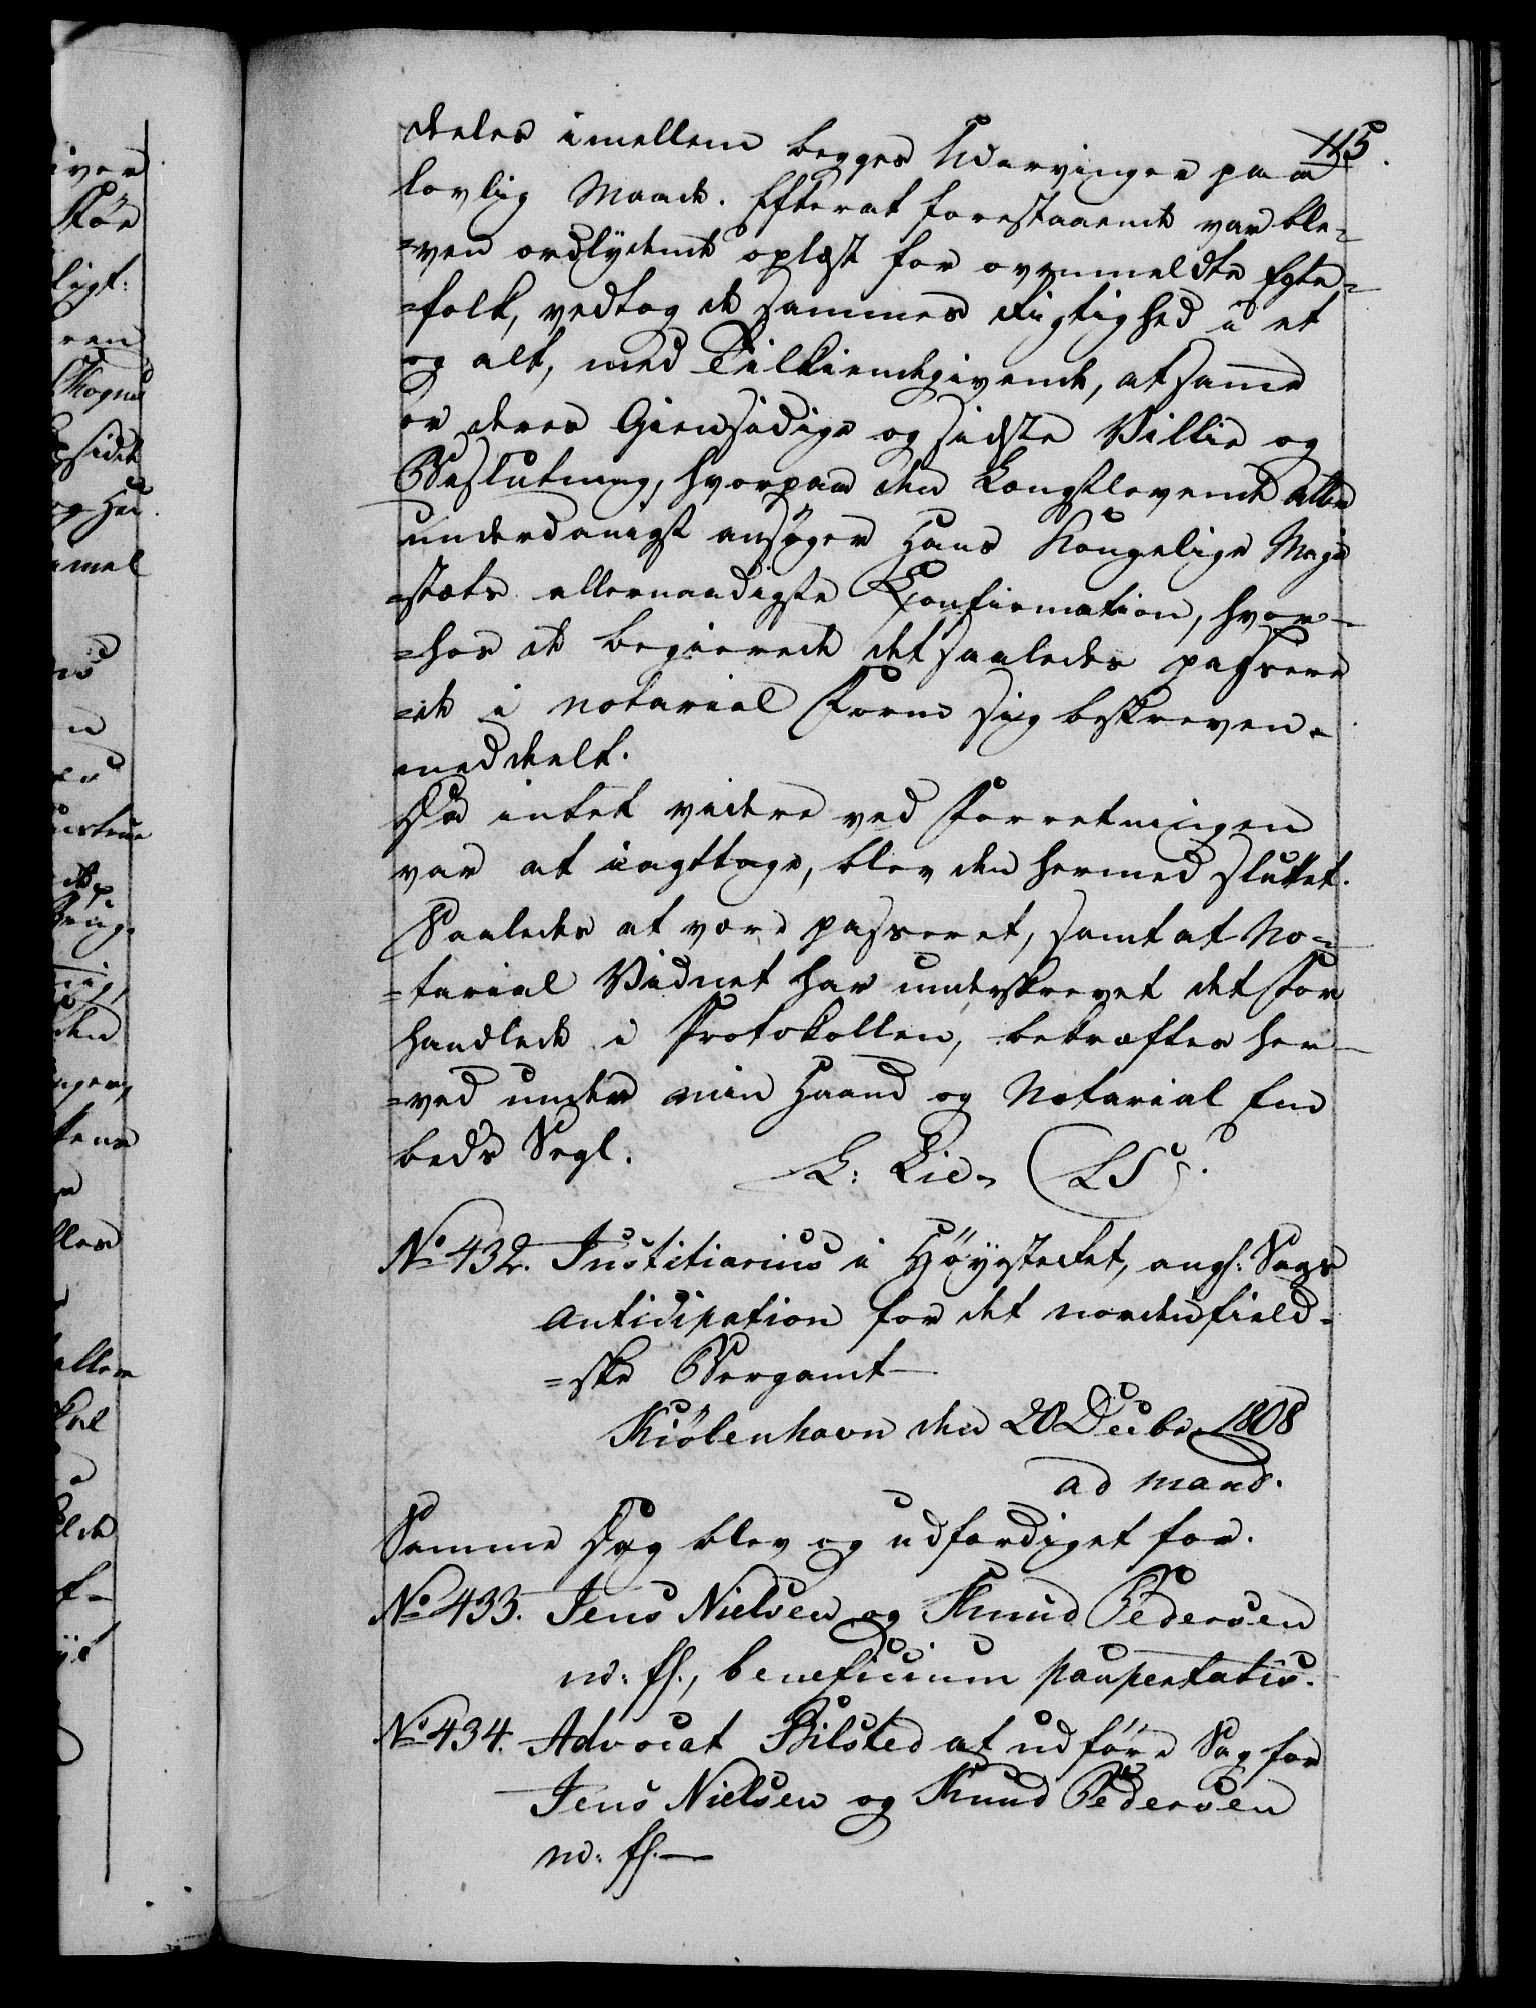 115.
deeles imellem begges Udarvinger paa
lovlig Maade. Efterat forestaaende var ble-
=ven ordlydende oplæst for ovenmeldte Egte-
=folk, vedtog de sammes Rigtighed i et
og alt, med Tilkiendegivende, at samme
er deres Giensidige og sidste Villie og
Beslutning, hvorpaa den Længstlevende aller
underdanigst ansøger Hans Kongelige Maje
=stæts allernaadigste Confirmation, hvor-
=hos de begierede det saaledes passere
=de i notarial Form sig beskreven
meddeelt.
Da intet videre ved Forretningen
var at iagttage, blev den hermed sluttet.
Saaledes at være passeret, samt at No-
=tarial Vidnet har underskrevet det For
handlede i Protokollen, bekræftes her-
=ved under min Haand og Notarial Em
beds Segl.
L: Lie. (LS).
No 432. Justitiarius i Høyesteret, ang: Sags
Anticipation for det nordenfield-
=ske Bergamt
Kiöbenhavn den 20 Decbr 1808
ad mand.
Samme Dag blev og udfærdiget for.
No 433. Jens Nielsen og Knud Pedersen
m: fl., beneficium paupertatis.
No 434. Advocat Bilsted at udföre Sag for
Jens Nielsen og Knud Pedersen
m: fl.